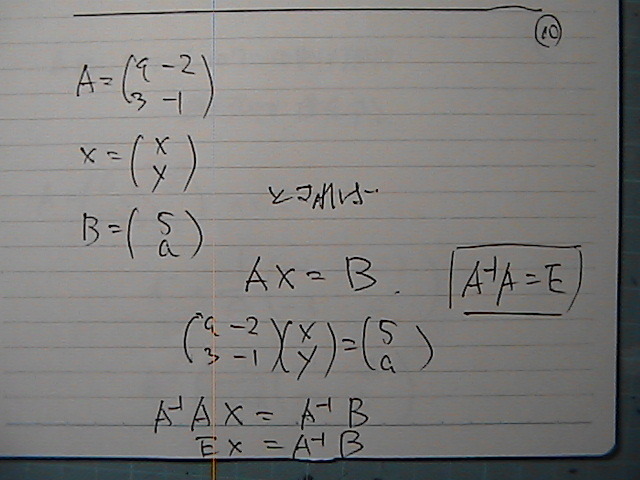 10
A = (9 -2
3 -1)
X = (x
y)
B = (5
a)
AX = B.
A⁻¹A = E
(9 -2
3 -1)(x
y) = (5
a)
A⁻¹AX = A⁻¹B
EX = A⁻¹B